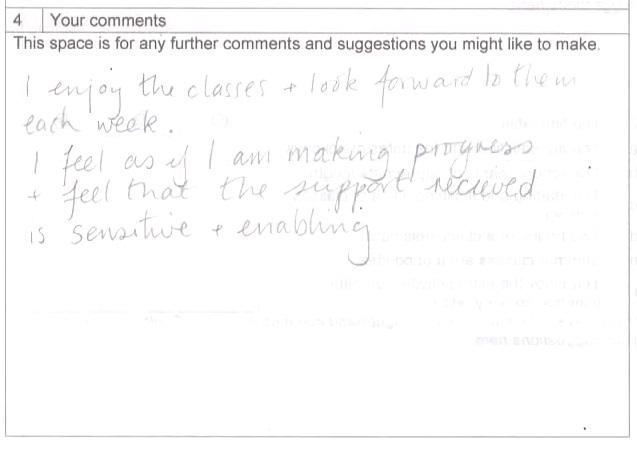 4 Your comments
This space is for any further comments and suggestions you might like to make.
I enjoy the classes + look forward to them
each week.
I feel as if I am making progress
+ feel that the support recieved
is sensitive + enabling